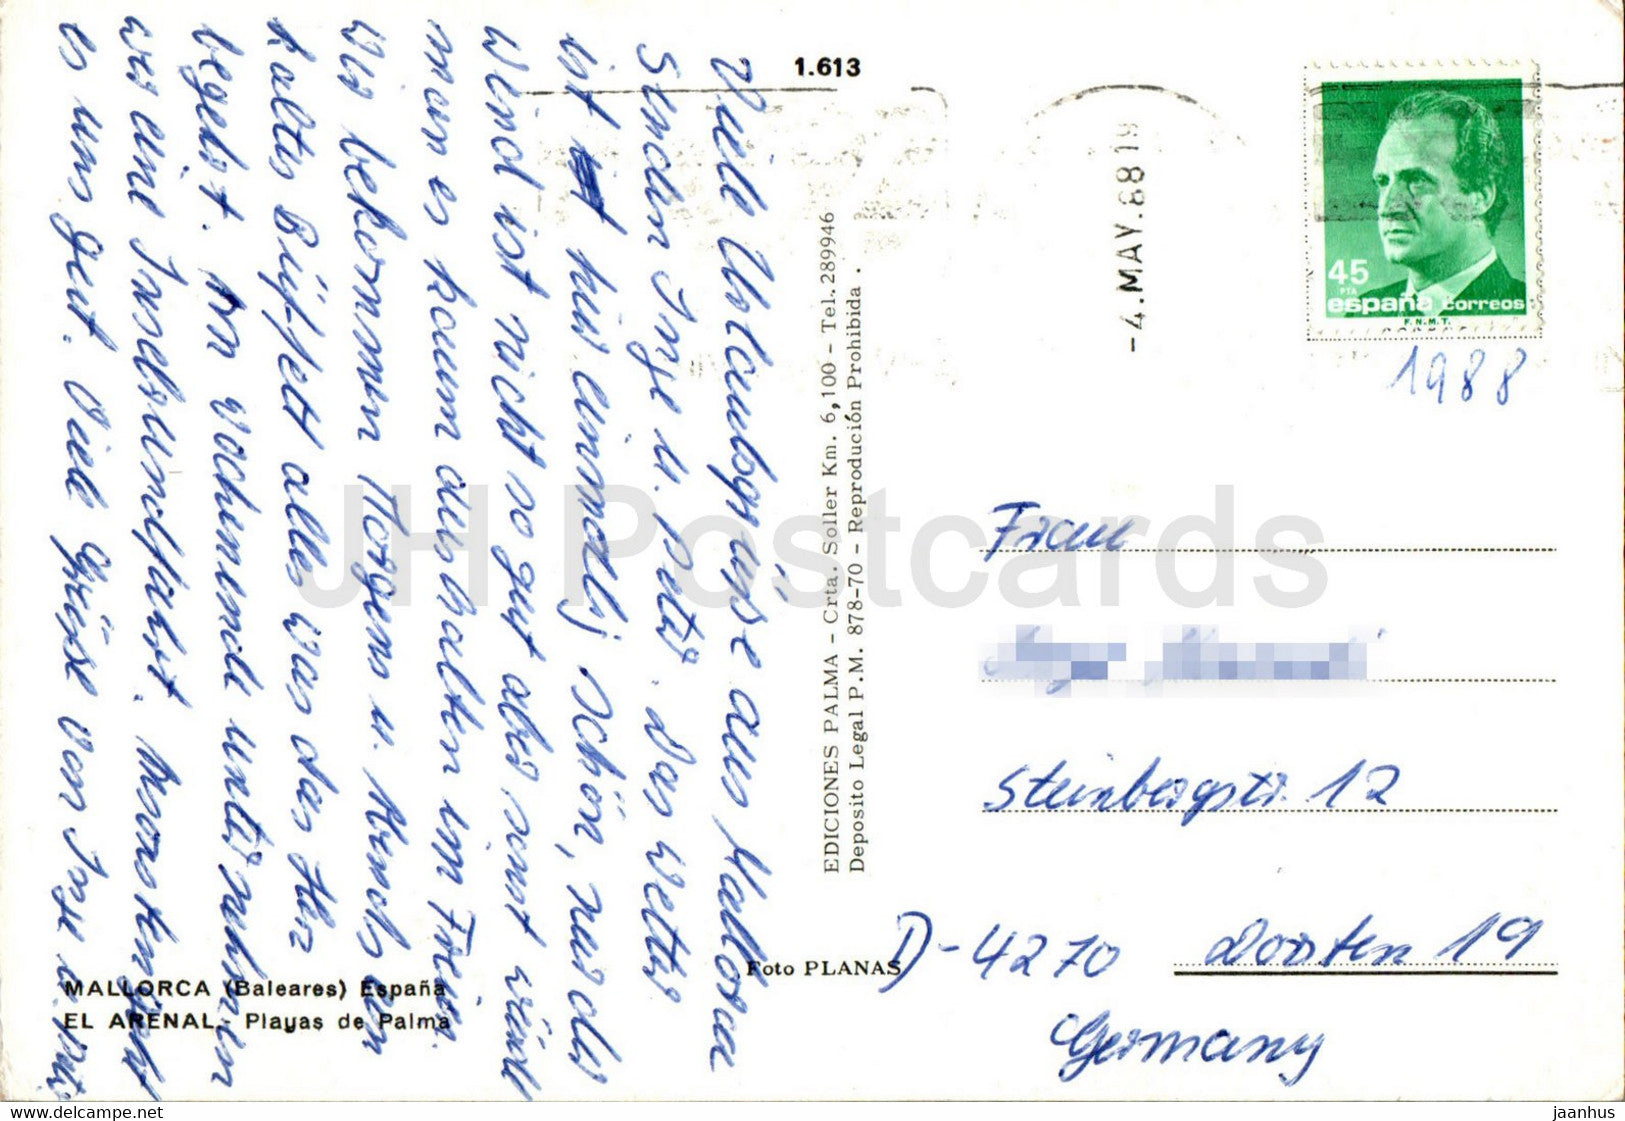 1.613
Viele Urlaubsgrüße aus Mallorca
senden Inge u. Peter. Das Wetter
ist hier einmalig schön, nur der
Wind ist nicht so gut aber sonst würde
man es kaum aushalten im Freien.
Wir bekommen Morgens u. Abends ein
kaltes Büffett alles was das Herz
begehrt. Am Wochenende unternehmen
wir eine Inselrundfahrt. Ansonsten geht
es uns gut. Viele Grüße von Inge u. Peter
EDICIONES PALMA - Crta. Soller Km. 6,100 - Tel. 289946
Deposito Legal P.M. 878-70 - Reproducción Prohibida .
MALLORCA (Baleares) España
EL ARENAL. Playas de Palma
Foto PLANAS
-4.MAY.88 19
45
PTA
españa correos
F.N.M.T.
1988
Frau
Steinbergstr. 12
D-4270 Dorsten 19
Germany
JH Postcards
www.delcampe.net
jaanhus